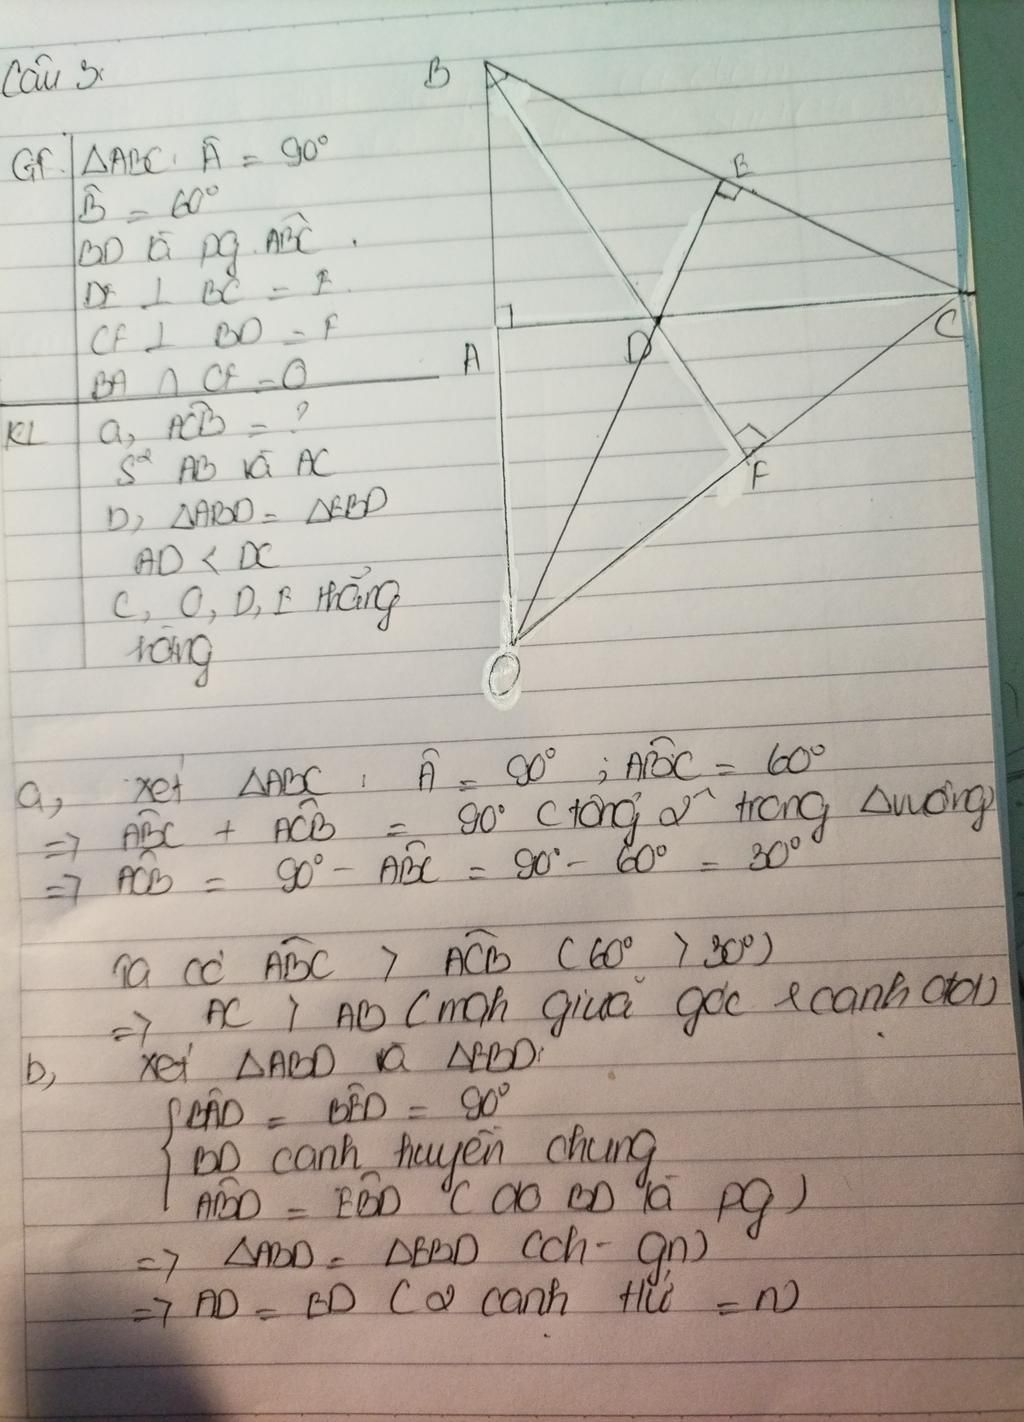 Câu 3:
GT △ABC: Â = 90°
B̂ = 60°
BD là pg ABĈ
DE ⊥ BC = E
CF ⊥ BD = F
BA ∩ CF = O
KL a, AĈB = ?
S² AB và AC
b, △ABD = △EBD
AD < DC
C, O, D, E thẳng
hàng
B
E
A
D
C
F
O
a, xét △ABC: Â = 90°; AB̂C = 60°
=> AB̂C + AĈB = 90° (tổng 2^ trong △vuông)
=> AĈB = 90° - AB̂C = 90° - 60° = 30°
Ta có AB̂C > AĈB (60° > 30°)
=> AC > AB (mqh giữa góc & cạnh đối)
b, xét △ABD và △EBD:
BÂD = BÊD = 90°
BD cạnh huyền chung
AB̂D = EB̂D (do BD là pg)
=> △ABD = △EBD (ch - gn)
=> AD = ED (2 cạnh tứ = n)